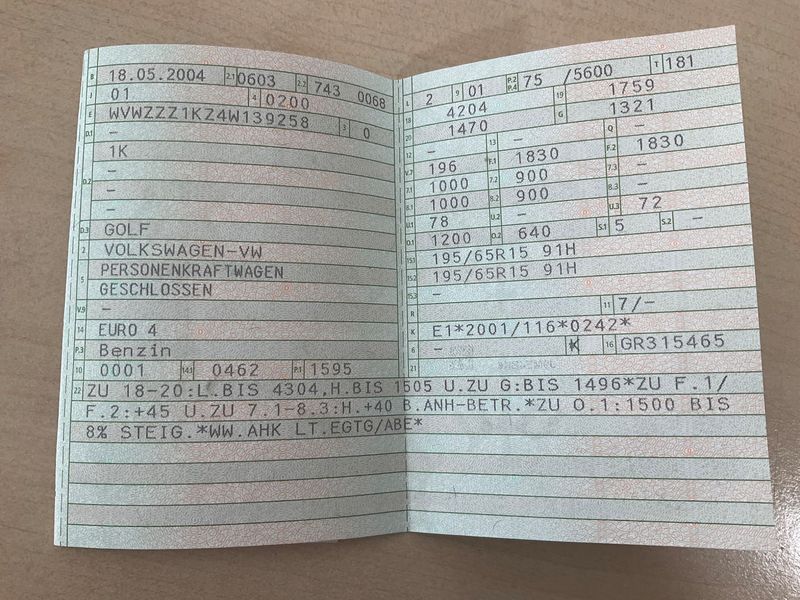 B 18.05.2004 2.1 0603 2.2 743 0068
J 01 4 0200
E WVWZZZ1KZ4W139258 3 0
D.1 –
1K
D.2 –
–
–
D.3 GOLF
2 VOLKSWAGEN-VW
5 PERSONENKRAFTWAGEN
GESCHLOSSEN
V.9 –
14 EURO 4
P.3 Benzin
10 0001 14.1 0462 P.1 1595
L 2 9 01 P.2 P.4 75 /5600 T 181
18 4204 19 1759
20 1470 G 1321
12 – 13 – Q –
V.7 196 F.1 1830 F.2 1830
7.1 1000 7.2 900 7.3 –
8.1 1000 8.2 900 8.3 –
U.1 78 U.2 – U.3 72
O.1 1200 O.2 640 S.1 5 S.2 –
15.1 195/65R15 91H
15.2 195/65R15 91H
15.3 –
R 11 7/–
K E1*2001/116*0242*
6 – K 16 GR315465
21
22 ZU 18-20:L.BIS 4304,H.BIS 1505 U.ZU G:BIS 1496*ZU F.1/
F.2:+45 U.ZU 7.1-8.3:H.+40 B.ANH-BETR.*ZU O.1:1500 BIS
8% STEIG.*WW.AHK LT.EGTG/ABE*